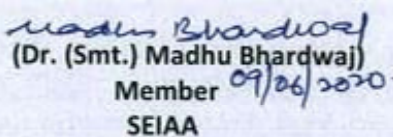 Madhu Bhardwaj
(Dr. (Smt.) Madhu Bhardwaj)
Member 09/06/2020
SEIAA